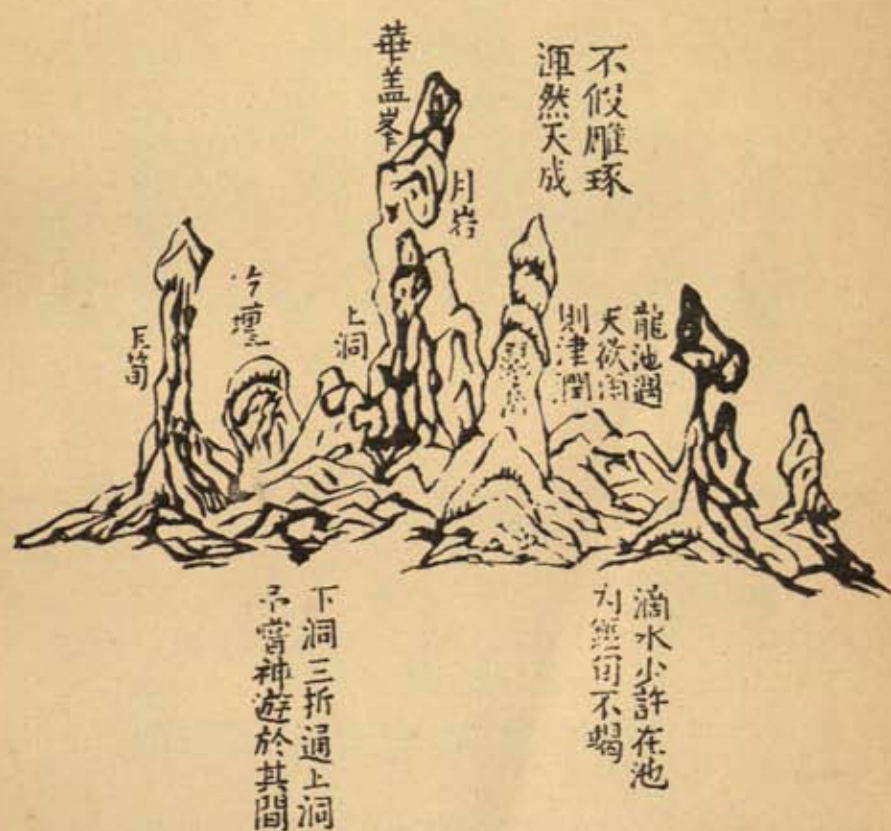 不假雕琢
渾然天成
華盖峯
月岩
龍池遇
天欲雨
則津潤
上洞
滴水少許在池
內經旬不竭
下洞三折通上洞
予嘗神遊於其間